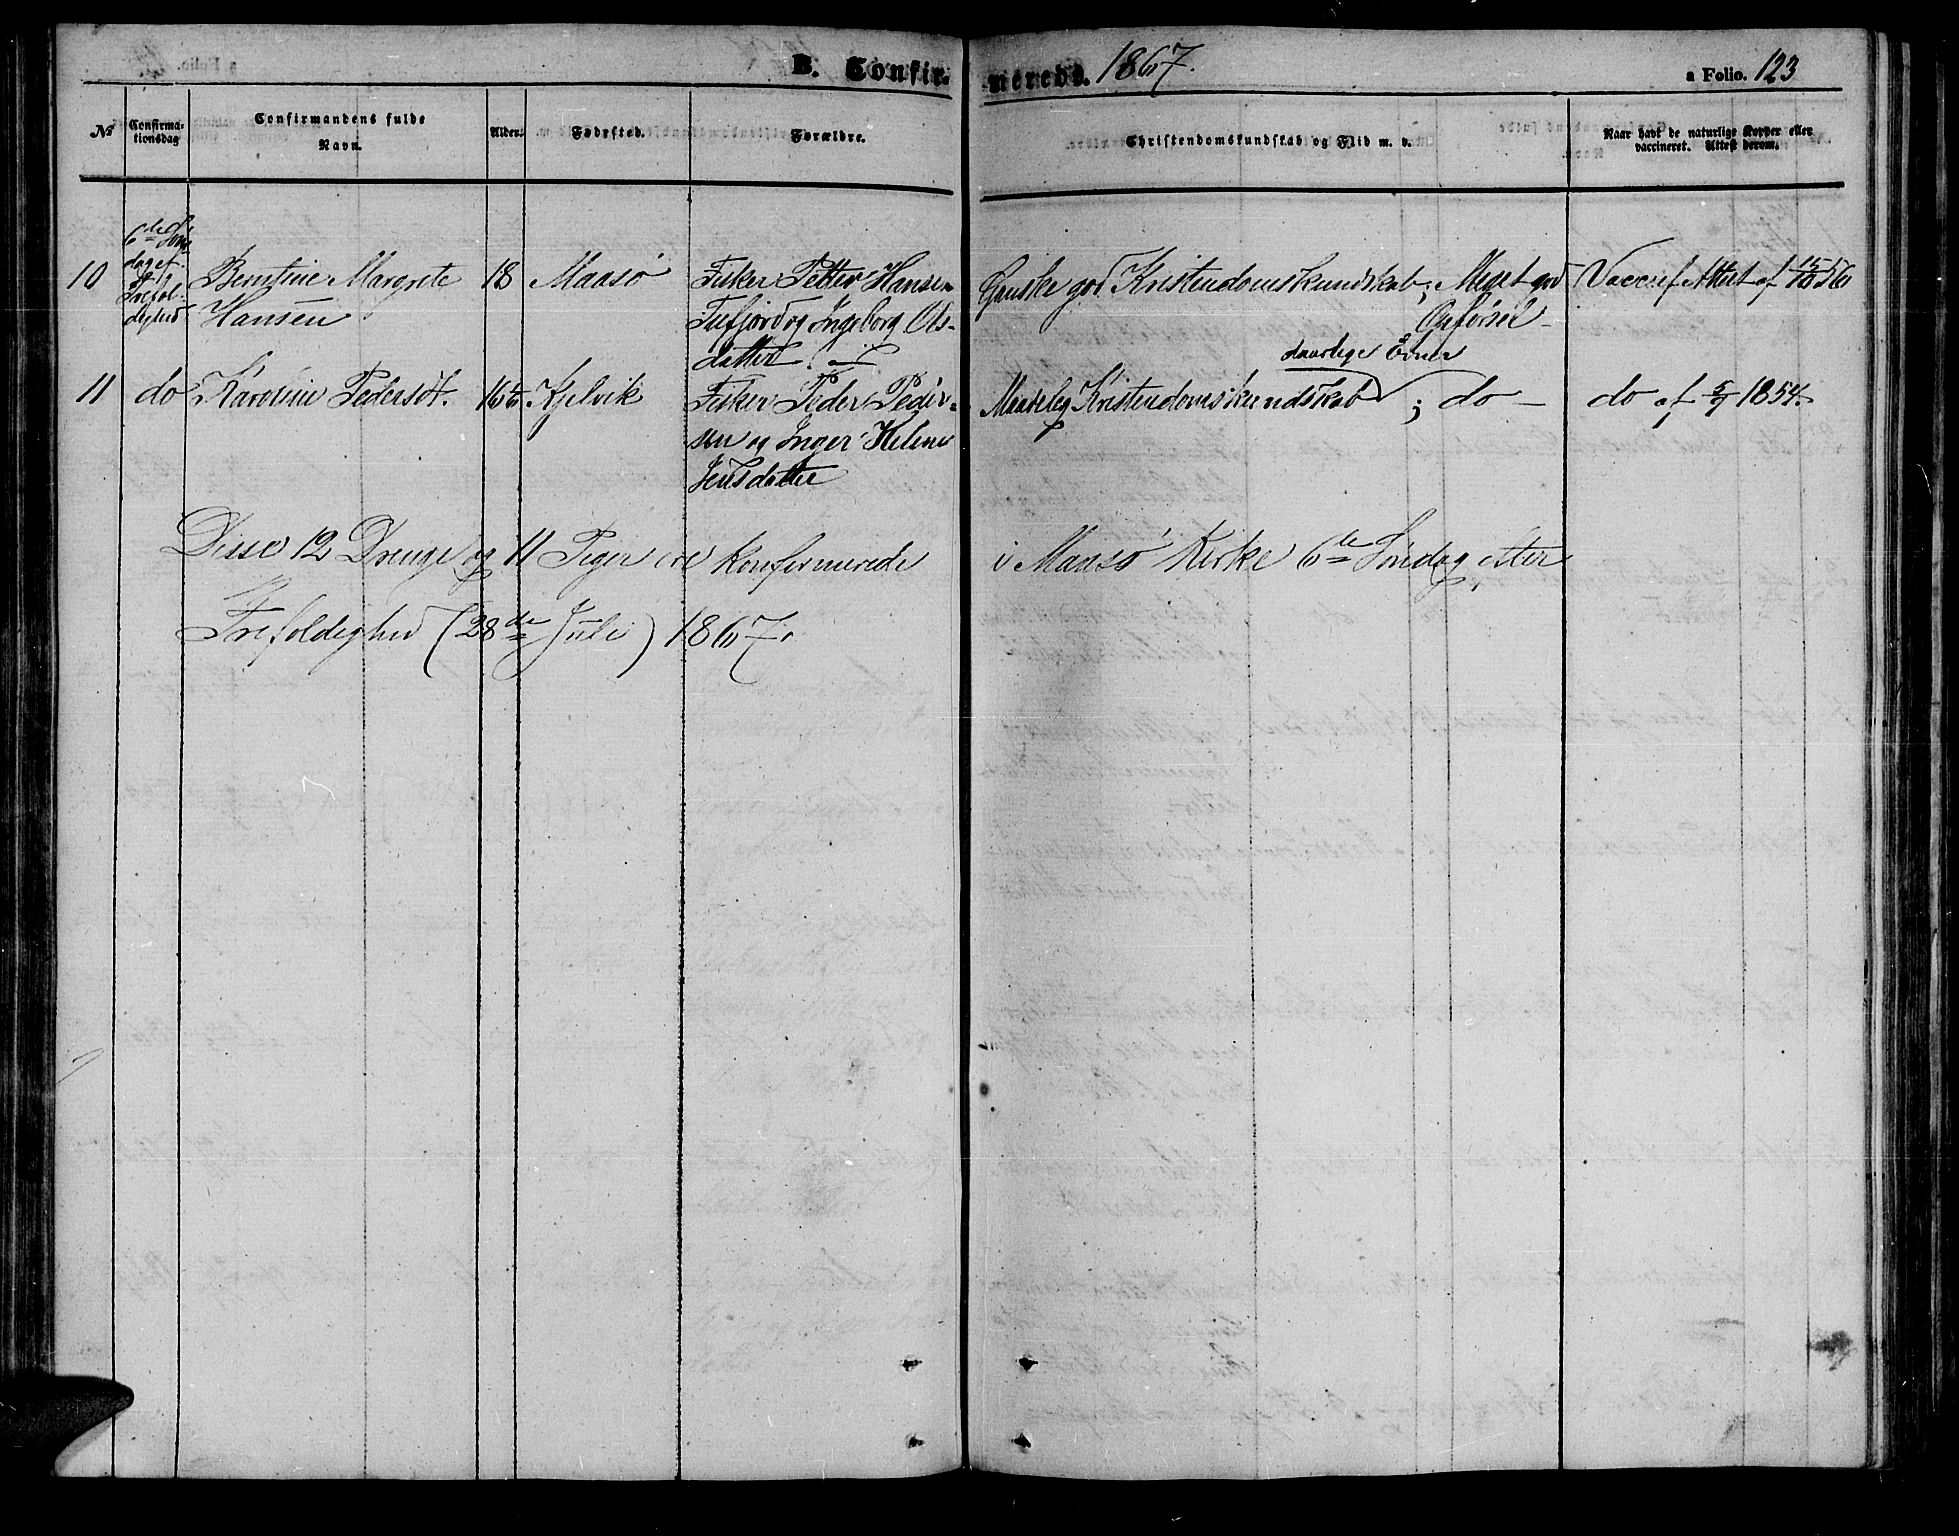 B. Confirmerede. 1867.
a Folio. 123
No
Confirmationsdag
Confirmandens fulde Navn.
Alder.
Fødested.
Forældre.
Christendomskundskab og Flid m. v.
Naar havt de naturlige Kopper eller vaccineret. Attest derom.
10
6te Søn-
dag ef.
Trefol-
dighed
Berntine Margrete
Hansen
18
Maasø
Fisker Petter Hansen
Tufjord og Ingeborg Ols-
datter
Ganske god Kristendomskundskab; Meget god
Opførsel
Vacc. ef. Attest af 15/10 56
11
do
Karoline Pedersdt.
Kjelvik
Fisker Peder Peder-
sen og Inger Helene
Jensdatter
daarlige Evner
Maadelig Kristendomskundskab; do
do af 5/9 1854.
Disse 12 Drenge og 11 Piger ere konfirmerede i Maasø Kirke 6te Søndag efter
Trefoldighed (28de Juli) 1867.